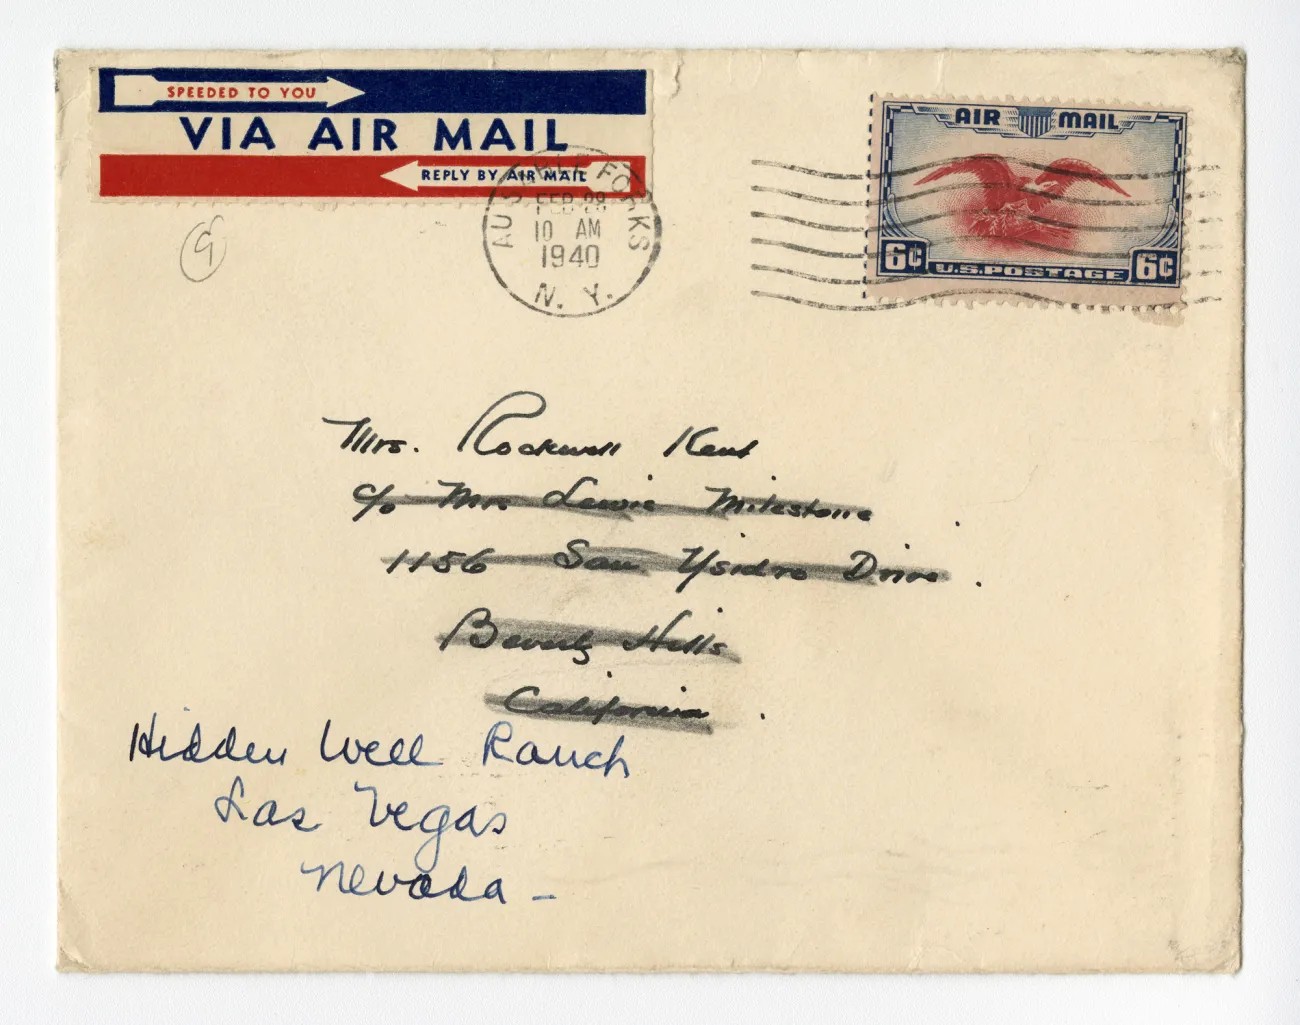 SPEEDED TO YOU
VIA AIR MAIL
REPLY BY AIR MAIL
AU SABLE FORKS
FEB 28
10 AM
1940
N. Y.
AIR MAIL
6¢ U.S. POSTAGE 6¢
9
Mrs. Rockwell Kent
c/o Mrs Lewis Milestone
1156 San Ysidro Drive.
Beverly Hills
California.
Hidden Well Ranch
Las Vegas
Nevada –